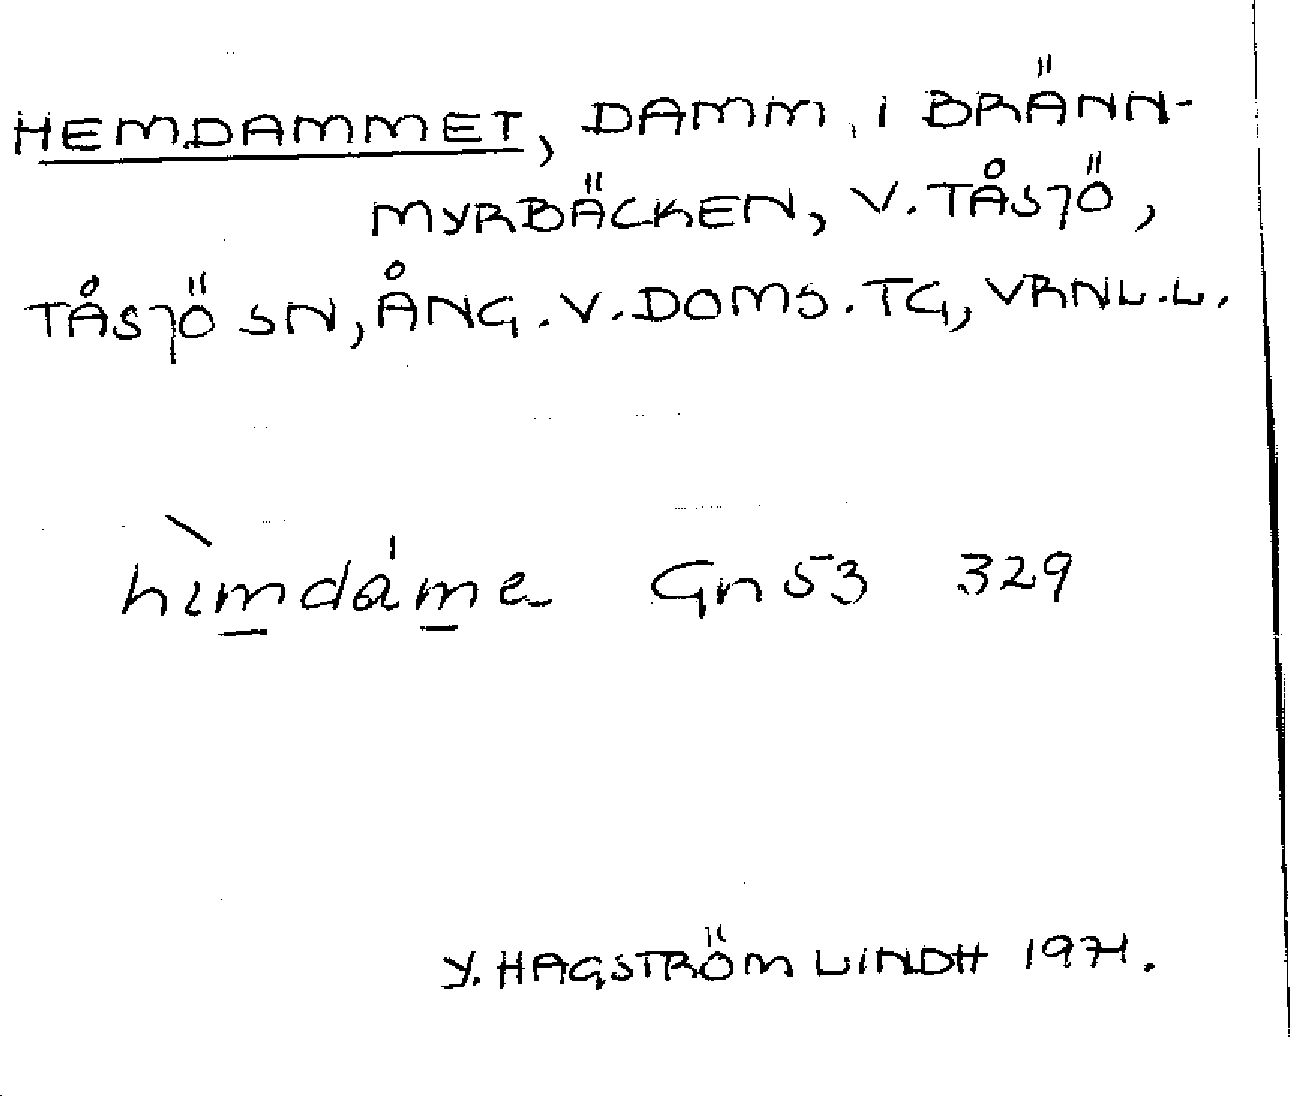 HEMDAMMET, DAMM, I BRÄNN-
MYRBÄCKEN, V. TÅSJÖ,
TÅSJÖ SN, ÅNG. V. DOMS. TG, VRNL.L.
hìmdáme Gn 53 329
Y. HAGSTRÖM LINDH 1971.